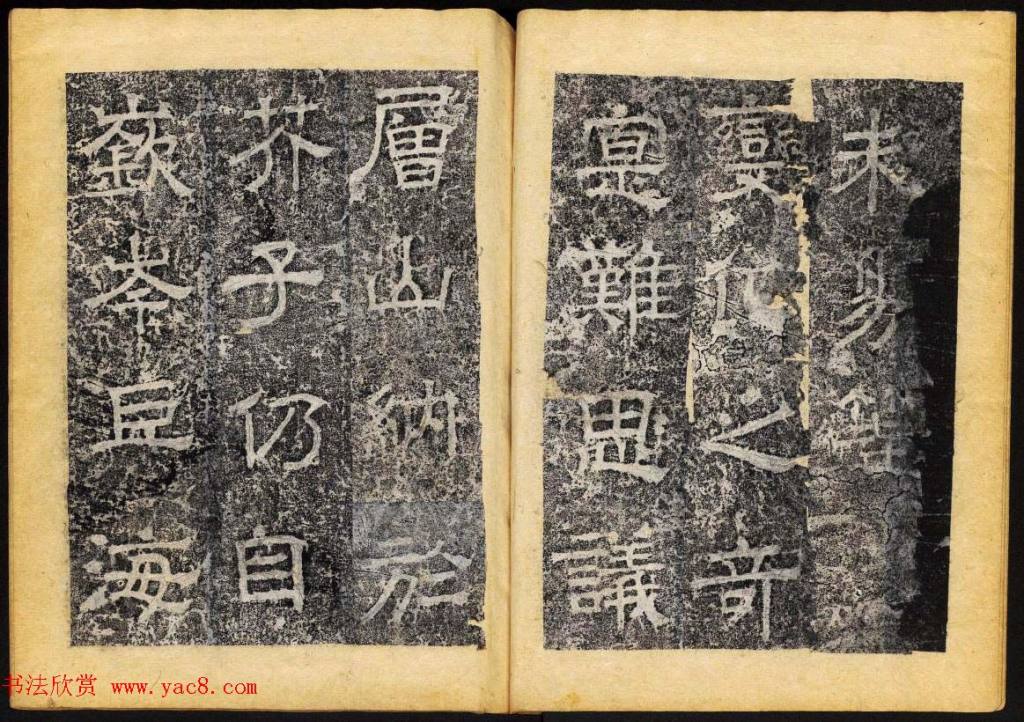 未易
變化之奇
寔難思議
層山納於
芥子仍自
嶔岑巨海
书法欣赏 www.yac8.com